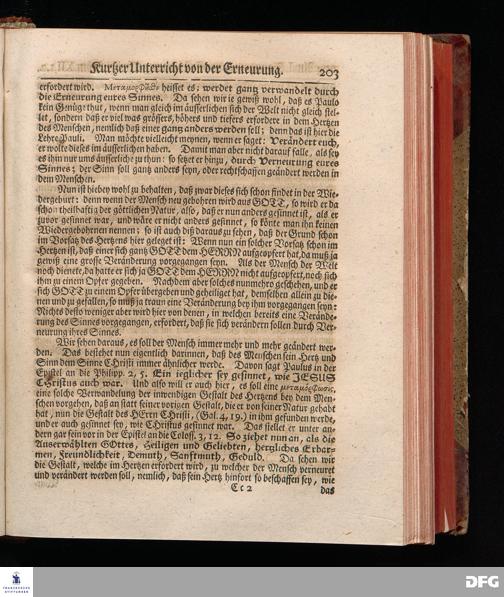 Kurtzer Unterricht von der Erneurung. 203
erfordert wird. Μεταμορφοῦσθαι heisset es: werdet gantz verwandelt durch
die Erneurung eures Sinnes. Da sehen wir ie gewiß wohl, daß es Paulo
kein Genüge thut, wenn man gleich im äusserlichen sich der Welt nicht gleich stel-
let, sondern daß er viel was grössers, höhers und tiefers erfordere in dem Hertzen
des Menschen, nemlich daß einer gantz anders werden soll; denn das ist hier die
Lehre Pauli. Man möchte vielleicht meynen, wenn er saget: Verändert euch,
er wolte dieses im äusserlichen haben. Damit man aber nicht darauf falle, als sey
es ihm nur ums äusserliche zu thun: so setzet er hinzu, durch Verneurung eures
Sinnes; der Sinn soll gantz anders seyn, oder rechtschaffen geändert werden in
dem Menschen.
Nun ist hiebey wohl zu behalten, daß zwar dieses sich schon findet in der Wie-
dergeburt: denn wenn der Mensch neu gebohren wird aus GOTT, so wird er da
schon theilhaftig der göttlichen Natur, also, daß er nun anders gesinnet ist, als er
zuvor gesinnet war, und wäre er nicht anders gesinnet, so könte man ihn keinen
Wiedergebohrnen nennen; so ist auch diß daraus zu sehen, daß der Grund schon
im Vorsatz des Hertzens hier geleget ist: Wenn nun ein solcher Vorsatz schon im
Hertzen ist, daß einer sich gantz GOTT dem HERRN aufgeopfert hat, da muß ja
gewiß eine grosse Veränderung vorgegangen seyn. Als der Mensch der Welt
noch dienete, da hatte er sich ja GOTT dem HERRN nicht aufgeopfert, noch sich
ihm zu einem Opfer gegeben. Nachdem aber solches nunmehro geschehen, und er
sich GOTT zu einem Opfer übergeben und geheiliget hat, demselben allein zu die-
nen und zu gefallen, so muß ja traun eine Veränderung bey ihm vorgegangen seyn:
Nichts desto weniger aber wird hier von denen, in welchen bereits eine Verände-
rung des Sinnes vorgegangen, erfordert, daß sie sich verändern sollen durch Ver-
neurung ihres Sinnes.
Wir sehen daraus, es soll der Mensch immer mehr und mehr geändert wer-
den. Das bestehet nun eigentlich darinnen, daß des Menschen sein Hertz und
Sinn dem Sinne Christi immer ähnlicher werde. Davon sagt Paulus in der
Epistel an die Philipp. 2, 5. Ein ieglicher sey gesinnet, wie JESUS
Christus auch war. Und also will er auch hier, es soll eine μεταμόρφωσις,
eine solche Verwandelung der inwendigen Gestalt des Hertzens bey dem Men-
schen vorgehen, daß an statt seiner vorigen Gestalt, die er von seiner Natur gehabt
hat, nun die Gestalt des HErrn Christi, (Gal. 4, 19.) in ihm gefunden werde,
und er auch gesinnet sey, wie Christus gesinnet war. Das stellet er unter an-
dern gar fein vor in der Epistel an die Coloss. 3, 12. So ziehet nun an, als die
Auserwählten GOttes, Heiligen und Geliebten, hertzliches Erbar-
men, Freundlichkeit, Demuth, Sanftmuth, Geduld. Da sehen wir
die Gestalt, welche im Hertzen erfordert wird, zu welcher der Mensch verneuret
und verändert werden soll, nemlich, daß sein Hertz hinfort so beschaffen sey, wie
Cc 2 das
FRANCKESCHE
STIFTUNGEN
DFG